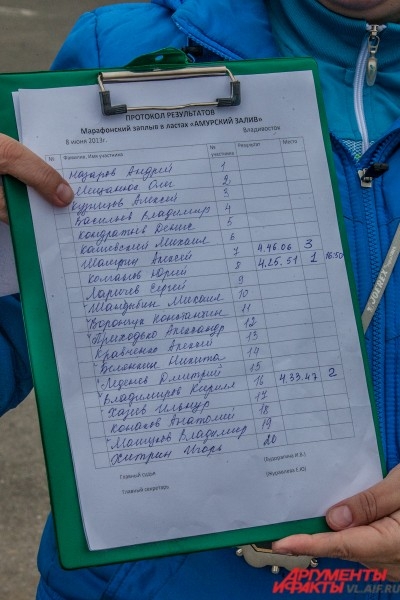 ПРОТОКОЛ РЕЗУЛЬТАТОВ
Марафонский заплыв в ластах «АМУРСКИЙ ЗАЛИВ»
8 июня 2013г. Владивосток
№ Фамилия, Имя участника № участника Результат Место
Назаров Андрей 1
Мещанков Олег 2
Курицов Алексей 3
Васильев Владимир 4
Кондратьев Денис 5
Кашевский Михаил 6
Шамрин Алексей 7 4.46.06 3
Команов Юрий 8 4.25.51 1 16:50
Ларичев Сергей 9
Шандыбин Михаил 10
Воронцук Константин 11
Приходько Александр 12
Кравченко Алексей 13
Беленкин Никита 14
Леднев Дмитрий 15
Владимиров Кирилл 16 4.33.47 2
Хазив Ильнур 17
Конаков Анатолий 18
Машуков Владимир 19
Хитрин Игорь 20
Главный судья
Главный секретарь
АРГУМЕНТЫ И ФАКТЫ
VL.AIF.RU